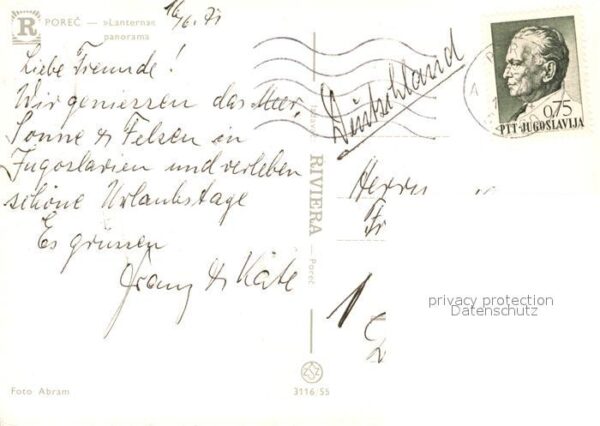 16/6. 71
R POREČ — »Lanterna«
panorama
Liebe Freunde!
Wir geniessen das Meer,
Sonne & Felsen in
Jugoslavien und verleben
schöne Urlaubstage
Es grüssen
Franz & Käte
Foto Abram
RIVIERA — Poreč
3116/55
Deutschland
0,75
PTT-JUGOSLAVIJA
Herrn
Fr
1
privacy protection
Datenschutz